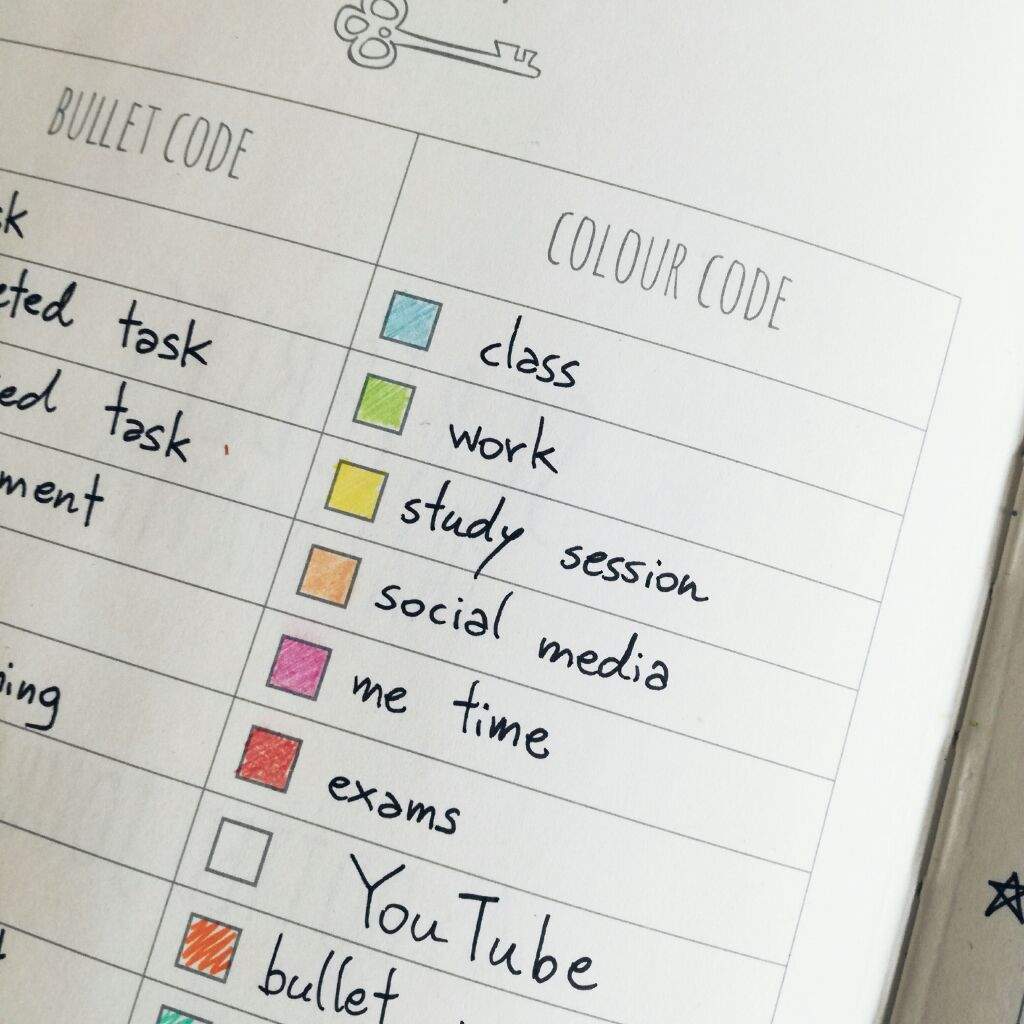 BULLET CODE
COLOUR CODE
task
class
work
task
study session
social media
me time
exams
YouTube
bullet